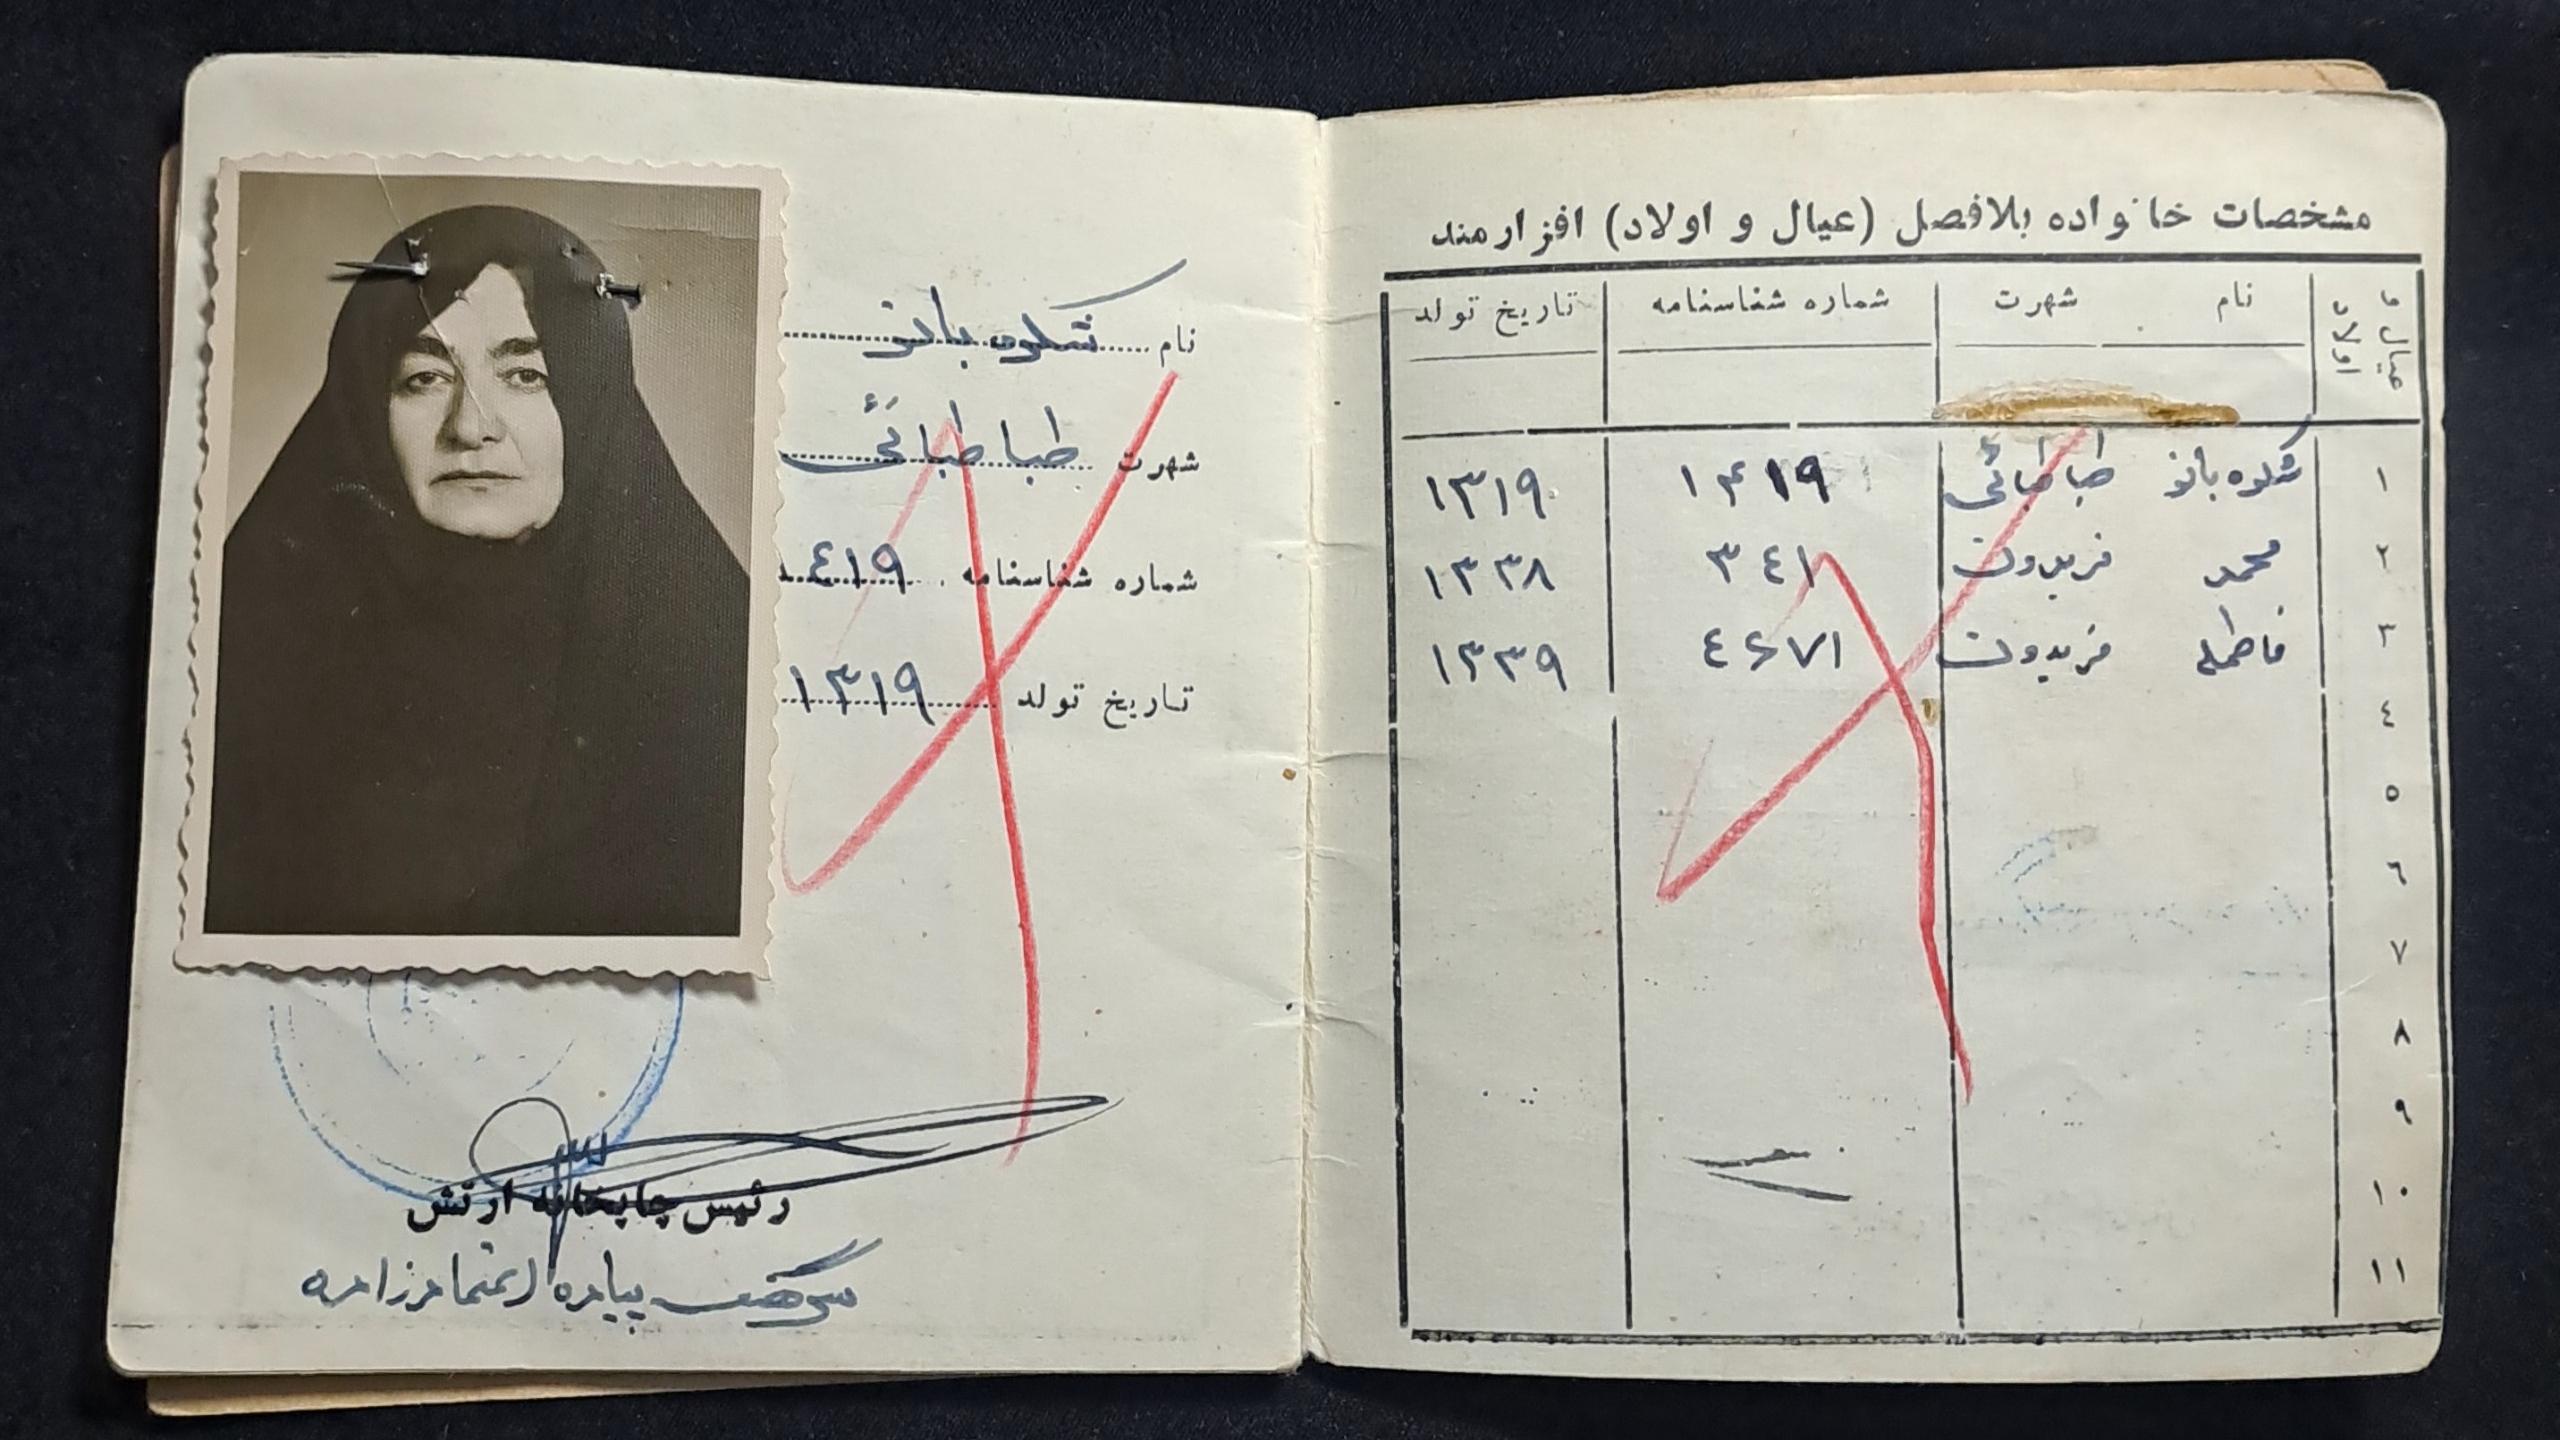 نام شکوه بانو
شهرت طباطبائی
شماره شناسنامه ٤١٩
تاریخ تولد ۱۳۱۹
رئیس چاپخانه ارتش
سرهنگ پیاده
مشخصات خانواده بلافصل (عیال و اولاد) افزارمند
عیال و اولاد نام شهرت شماره شناسنامه تاریخ تولد
۱ شکوه بانو طباطبائی ۱۴۱۹ ۱۳۱۹
۲ محمد فریدون ۳٤۱ ۱۳۳۸
۳ فاطمه فریدون ٤۶۷۱ ۱۳۳۹
٤
٥
٦
۷
۸
۹
۱۰
۱۱